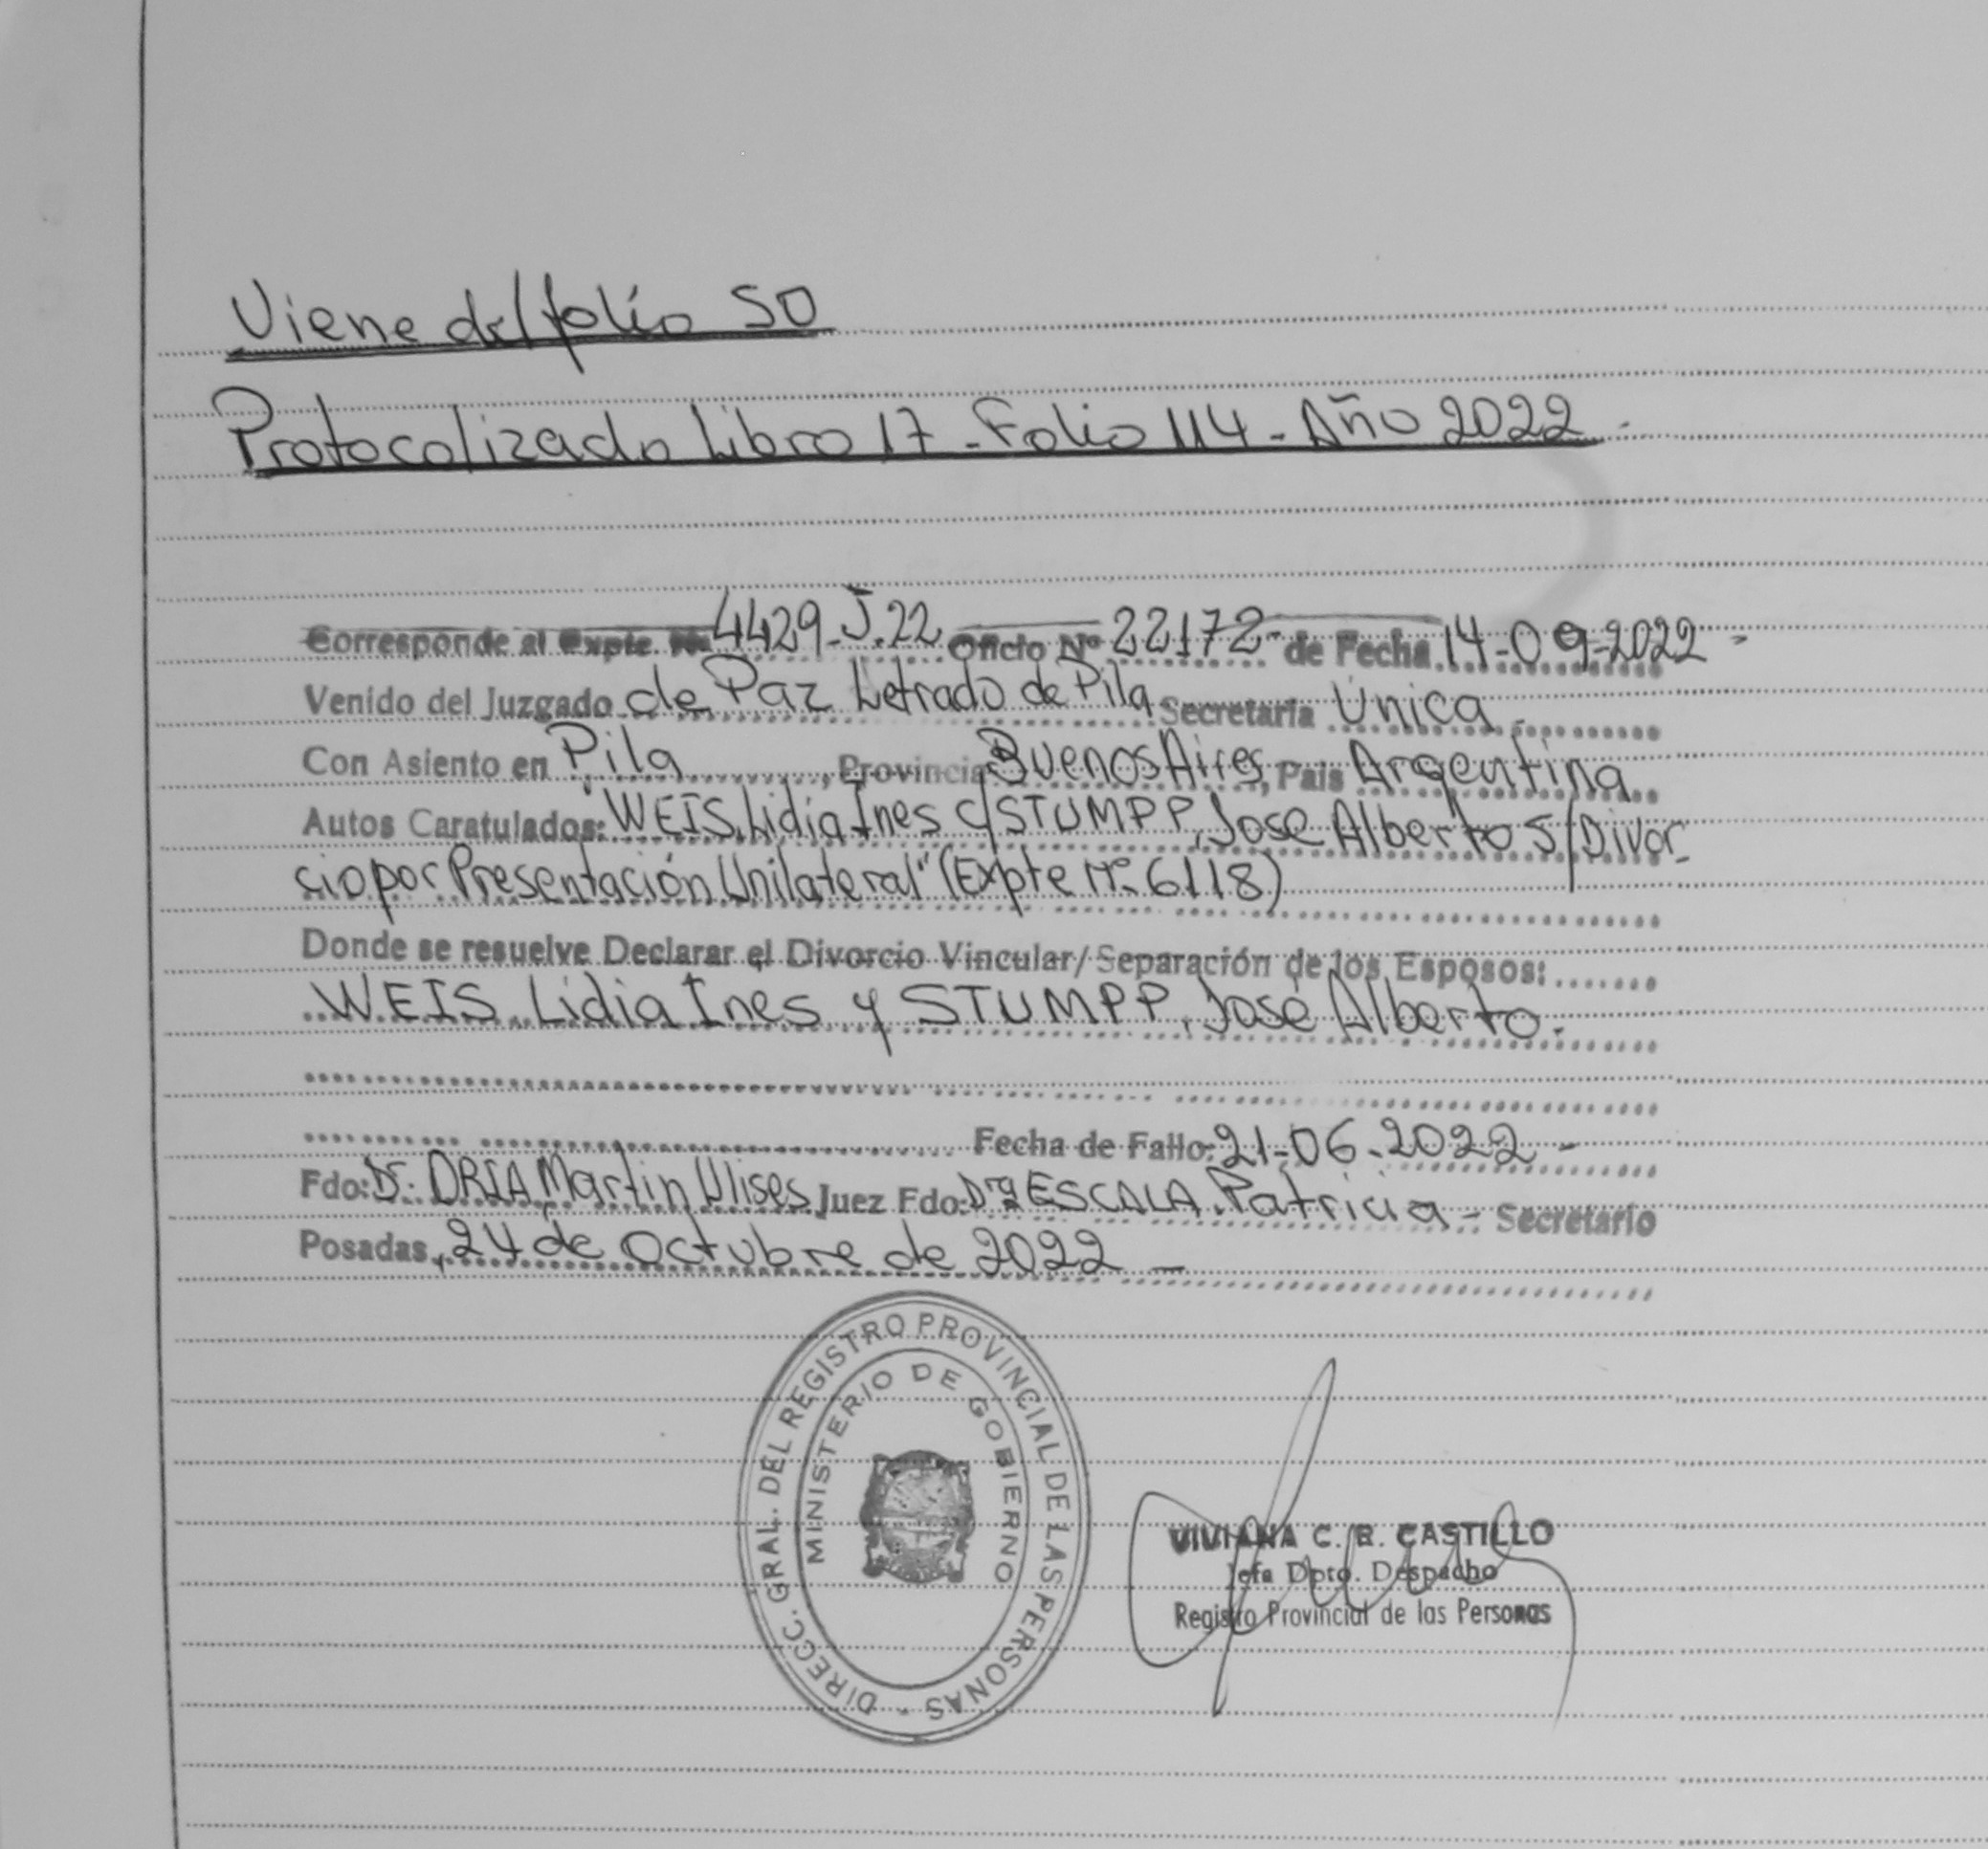 Viene del folio 50
Protocolizado Libro 17 - Folio 114 - Año 2022 -
Corresponde al Expte. Nº 4429-J.22 Oficio Nº 22172- de Fecha 14-09-2022 -
Venido del Juzgado de Paz Letrado de Pila Secretaria Unica.
Con Asiento en Pila, Provincia Buenos Aires, Pais Argentina
Autos Caratulados: "WEIS, Lidia Ines c/ STUMPP, Jose Alberto S/ Divor-
cio por Presentación Unilateral" (Expte Nº 6118)
Donde se resuelve Declarar el Divorcio Vincular/Separación de los Esposos:
WEIS, Lidia Ines y STUMPP, José Alberto.
Fecha de Fallo: 21-06-2022 -
Fdo: Dr. ORIA Martin Ulises Juez Fdo: Dra ESCALA, Patricia - Secretario
Posadas, 24 de Octubre de 2022 -
DIRECC. GRAL. DEL REGISTRO PROVINCIAL DE LAS PERSONAS -
MINISTERIO DE GOBIERNO
VIVIANA C. R. CASTILLO
Jefa Dpto. Despacho
Registro Provincial de las Personas